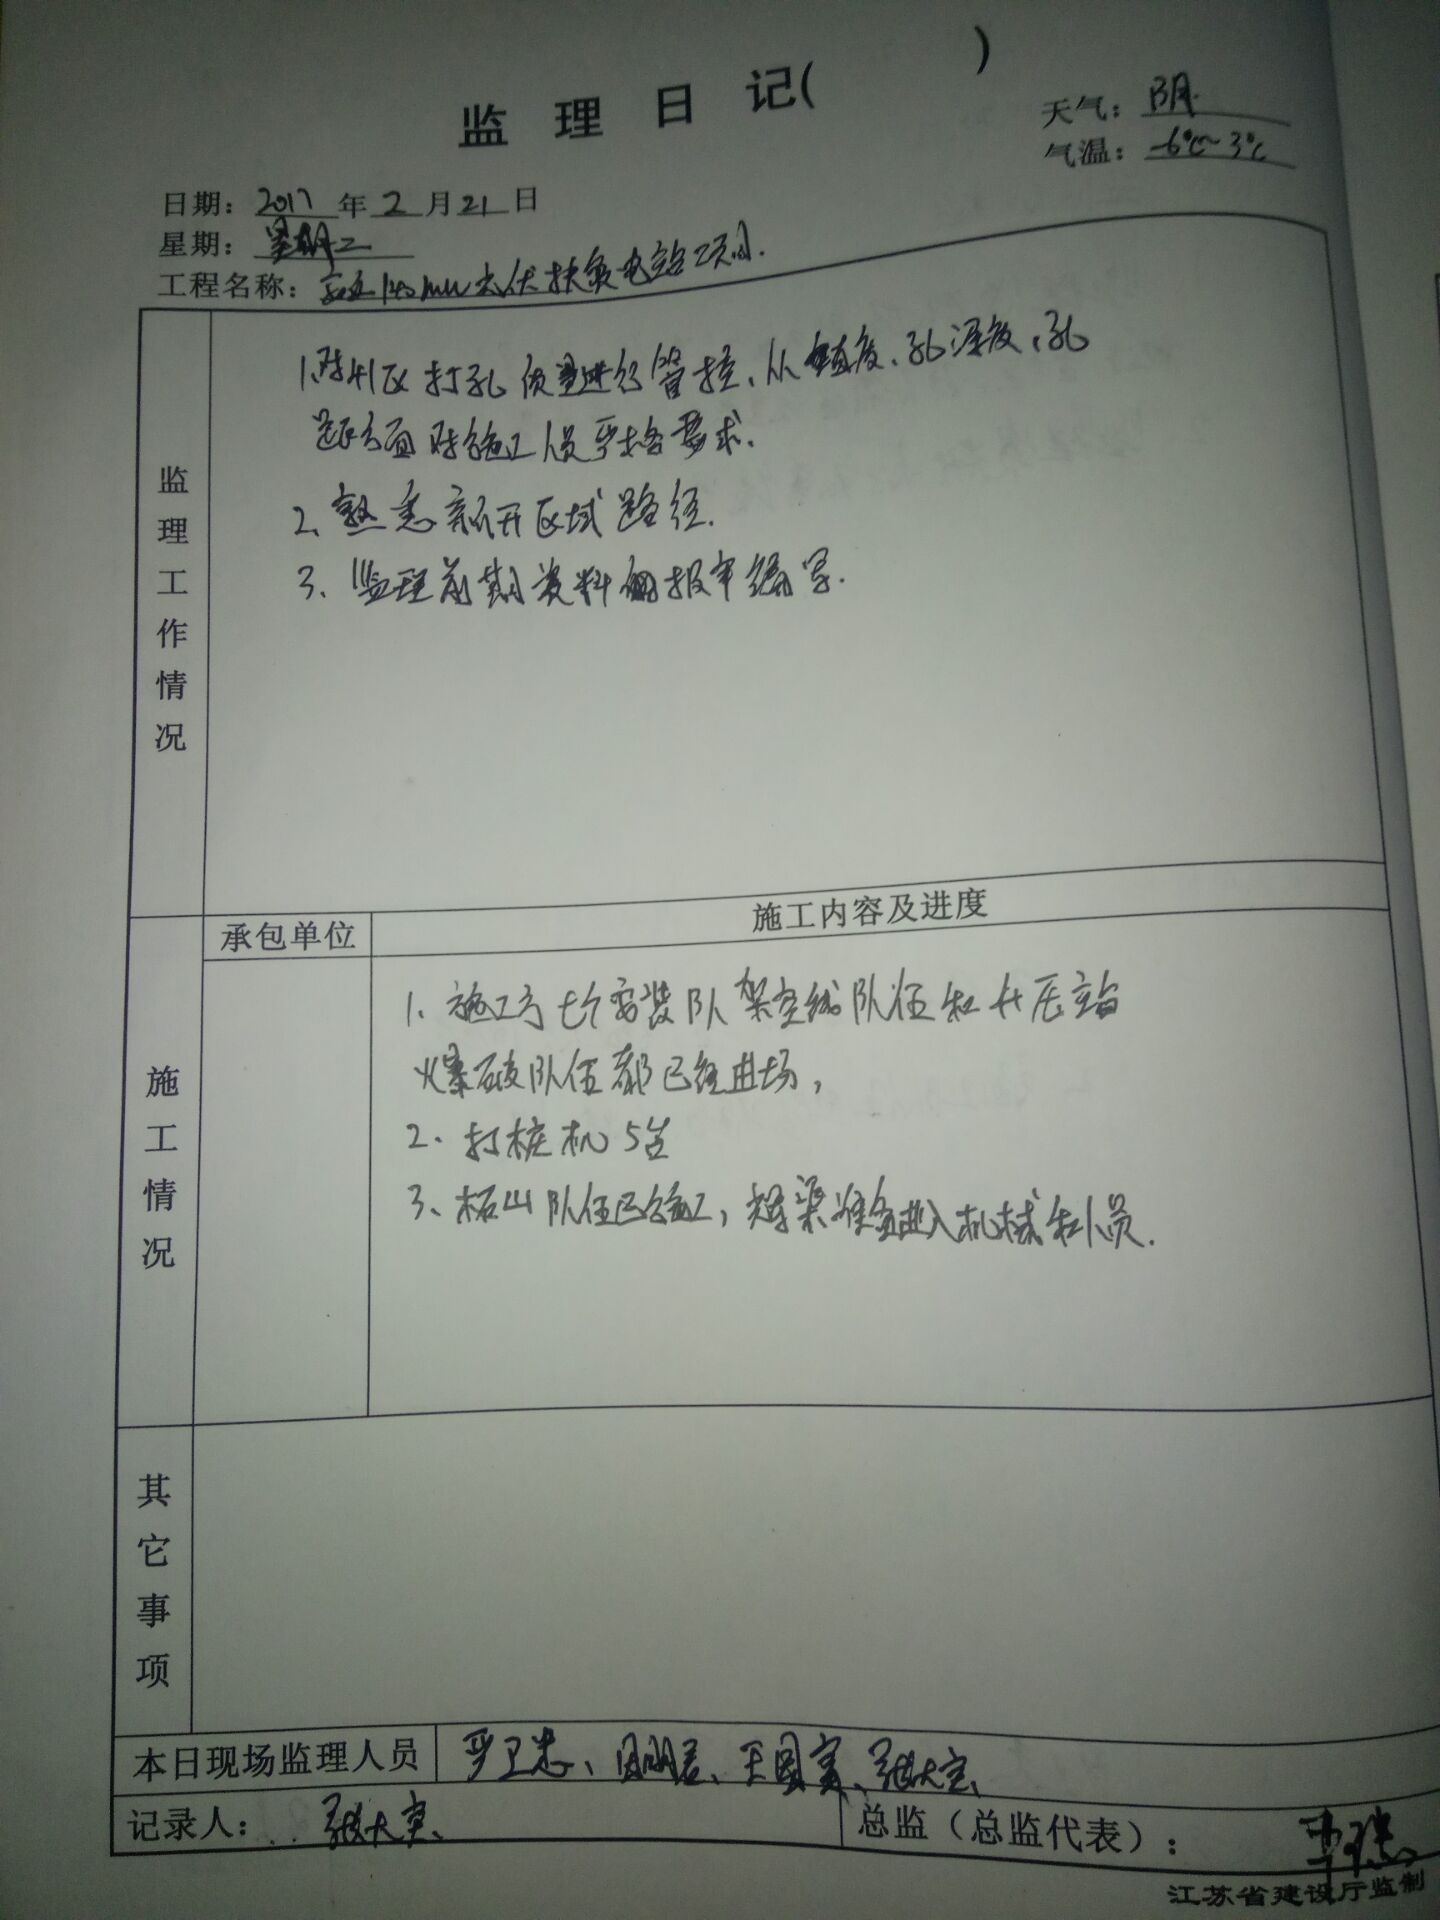 监理日记( )
天气：阴
气温：-6℃~3℃
日期：2017年2月21日
星期：星期二
工程名称：140MW光伏扶贫电站项目.
监理工作情况
1、对41区打孔质量进行管控，从垂直度、孔深度、孔
距方面对施工人员严格要求.
2、熟悉新开区域路径.
3、监理前期资料的报审编写.
承包单位
施工内容及进度
施工情况
1、施工方七个安装队架空线队伍和升压站
爆破队伍都已经进场，
2、打桩机5台
3、柘山队伍已施工，准备进入机械和人员.
其它事项
本日现场监理人员
严卫忠、周明君、王国富、张大宝
记录人：张大宝
总监（总监代表）：
江苏省建设厅监制